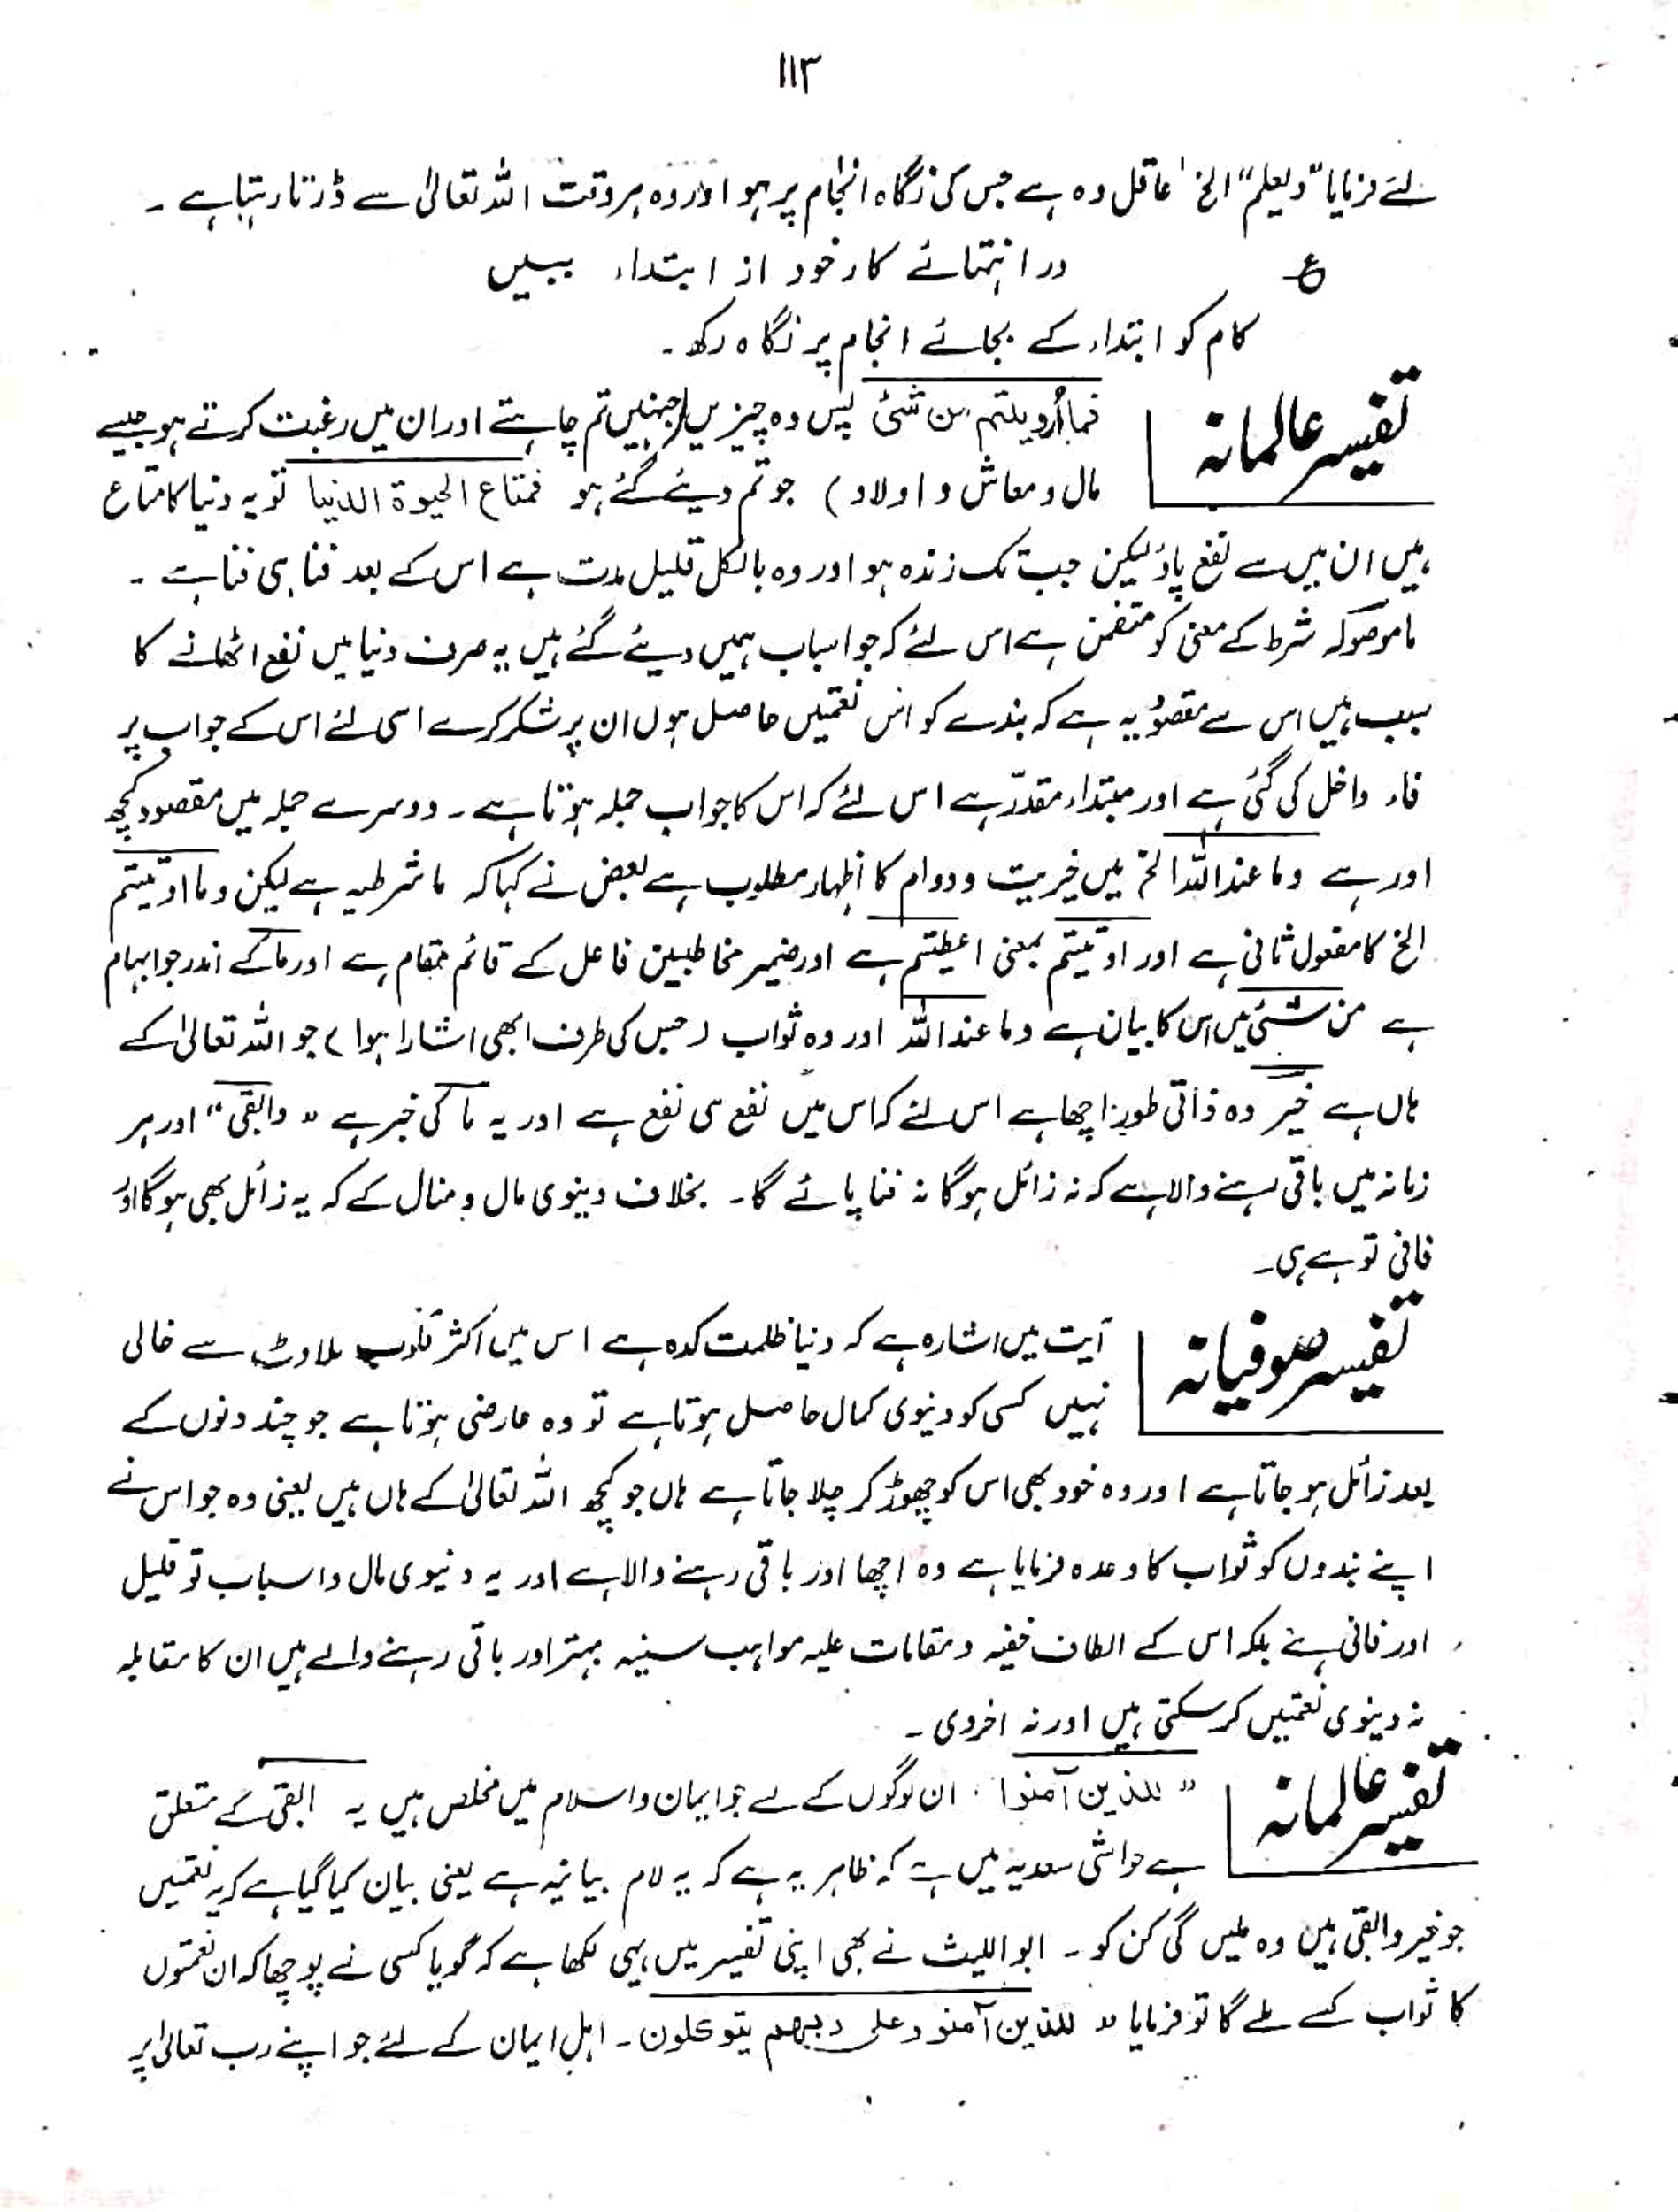 ۱۱۳
لئے فرمایا "ویعلم" الخ عاقل وہ ہے جس کی نگاہ انجام پر ہو اور وہ ہر وقت اللہ تعالیٰ سے ڈرتا رہتا ہے ۔
ع در انتہائے کار خود از ابتداء ببیں
کام کو ابتداء کے بجائے انجام پر نگاہ رکھ ۔
تفسیر عالمانہ
فما أوتیتم من شئ پس وہ چیزیں (جنہیں تم چاہتے اور ان میں رغبت کرتے ہو جیسے
مال و معاش و اولاد) جو تم دیئے گئے ہو فمتاع الحیوة الدنیا تو یہ دنیا کا متاع
ہیں ان میں سے نفع پاؤ لیکن جب تک زندہ ہو اور وہ بالکل قلیل مدت ہے اس کے بعد فنا ہی فنا ہے ۔
ما موصولہ شرط کے معنی کو متضمن ہے اس لئے کہ جو اسباب ہمیں دیئے گئے ہیں یہ صرف دنیا میں نفع اٹھانے کا
سبب ہیں اس سے مقصود یہ ہے کہ بندے کو اس نعمتیں حاصل ہوں ان پر شکر کرے اسی لئے اس کے جواب پر
فاء داخل کی گئی ہے اور مبتداء مقدّر ہے اس لئے کہ اس کا جواب جملہ ہوتا ہے ۔ دوسرے جملہ میں مقصود کچھ
اور ہے وما عند اللہ الخ میں خیریت و دوام کا اظہار مطلوب ہے بعض نے کہا کہ ما شرطیہ ہے لیکن وما اوتیتم
الخ کا مفعول ثانی ہے اور اوتیتم بمعنی اعطیتم ہے اور ضمیر مخاطبین فاعل کے قائم مقام ہے اور ما کے اندر جو ابہام
ہے من شئی میں اس کا بیان ہے وما عند اللہ اور وہ ثواب (جس کی طرف ابھی اشارا ہوا) جو اللہ تعالیٰ کے
ہاں ہے خیر وہ ذاتی طور پر اچھا ہے اس لئے کہ اس میں نفع ہی نفع ہے اور یہ ما کی خبر ہے "وابقی" اور ہر
زمانہ میں باقی رہنے والا ہے کہ نہ زائل ہوگا نہ فنا پائے گا ۔ بخلاف دینوی مال و منال کے کہ یہ زائل بھی ہوگا اور
فانی تو ہے ہی ۔
تفسیر صوفیانہ
آیت میں اشارہ ہے کہ دنیا ظلمت کدہ ہے اس میں اکثر قلوب ملاوٹ سے خالی
نہیں کسی کو دینوی کمال حاصل ہوتا ہے تو وہ عارضی ہوتا ہے جو چند دنوں کے
بعد زائل ہو جاتا ہے اور وہ خود بھی اس کو چھوڑ کر چلا جاتا ہے ہاں جو کچھ اللہ تعالیٰ کے ہاں ہیں یعنی وہ جو اس نے
اپنے بندوں کو ثواب کا وعدہ فرمایا ہے وہ اچھا اور باقی رہنے والا ہے اور یہ دنیوی مال و اسباب تو قلیل
اور فانی ہے بلکہ اس کے الطاف خفیہ و مقامات علیہ مواہب سنیہ بہتر اور باقی رہنے والے ہیں ان کا مقابلہ
نہ دینوی نعمتیں کرسکتی ہیں اور نہ اخروی ۔
تفسیر عالمانہ
"للذین آمنوا، ان لوگوں کے لے جو ایمان و اسلام میں مخلص ہیں یہ ابقی کے متعلق
ہے حواشی سعدیہ میں ہے کہ ظاہر یہ ہے کہ یہ لام بیانیہ ہے یعنی بیان کیا گیا ہے کہ یہ نعمتیں
جو خیر وابقی ہیں وہ ملیں گی کن کو ۔ ابو اللیث نے بھی اپنی تفسیر میں یہی لکھا ہے کہ گویا کسی نے پوچھا کہ ان نعمتوں
کا ثواب کسے ملے گا تو فرمایا "للذین آمنو وعلی ربھم یتوکلون ۔ اہل ایمان کے لئے جو اپنے رب تعالیٰ پر